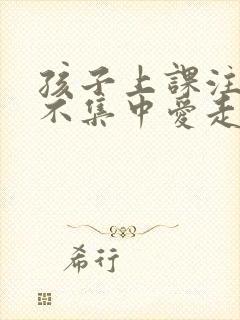 孩子上課注
不集中愛走
希行